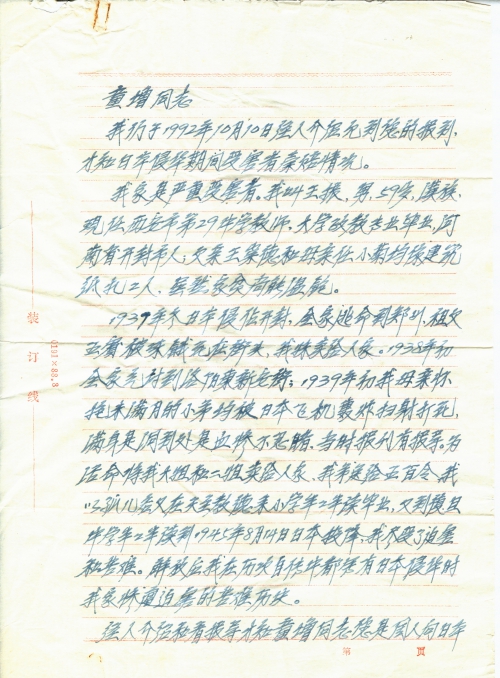 童增同志
我们于1992年10月10日经人介绍见到您的报到,
才知日本侵华期间受害者索赔情况。
我家是严重受害者。我叫王振,男,59岁,汉族,
现住西安市第29中学教师,大学政教专业毕业,河
南省开封市人;父亲王荣德和母亲住小南均
二人,
1937年冬日本侵佔开封,全家逃命到郑州,祖父
在街头,我妹卖给人家。1938年初
全家先到洛阳东新安街;1939年初我母亲怀
抱未满月的小弟均被日本飞机轰炸扫射打死,
满身是洞到处是血惨不忍睹,当时报刊有报导。为
活命将我大姐和二姐卖给人家,我弟
在天主教德来小学半工半读毕业,又到复旦
中学半工半读到1945年8月14日日本投降,我不受了迫害
和苦难。解放后我在历次自传中都写有日本侵华时
我家惨遭迫害的苦难历史。
经人介绍和看报导才知童增同志您是国人向日本
装订线
0191×88.8
第 页